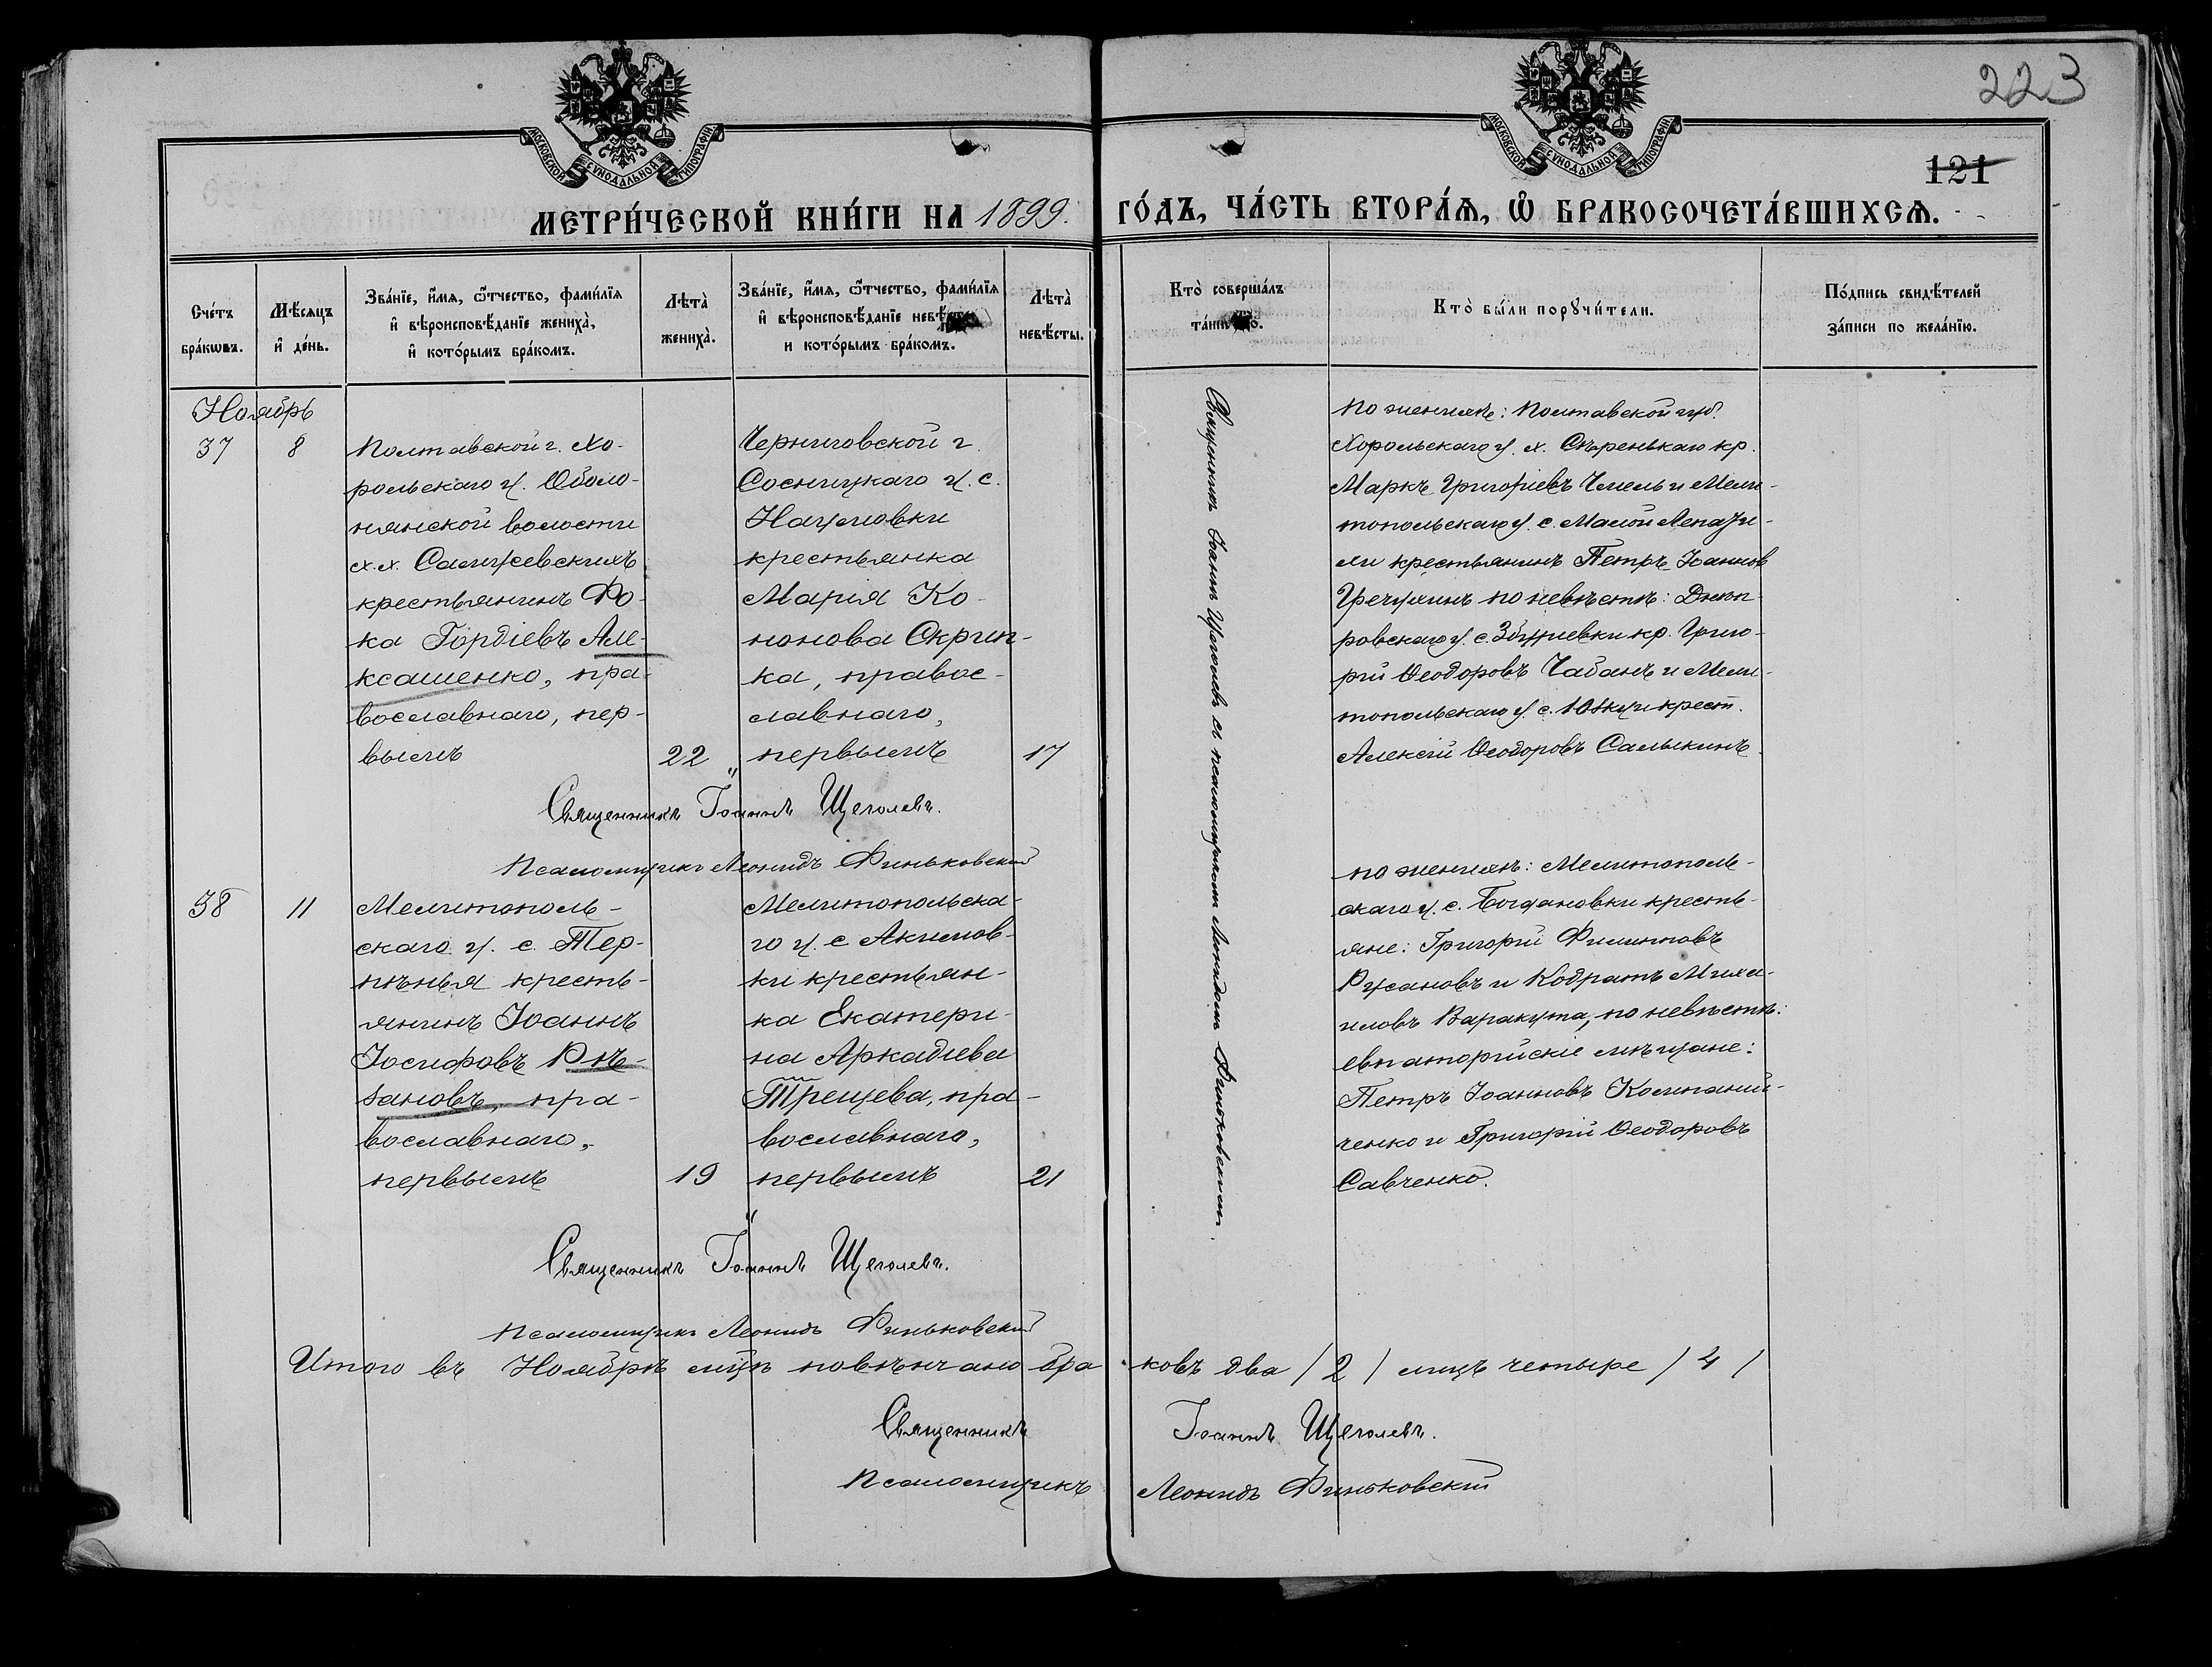 223
МОСКОВСКОЙ СѴНОДАЛЬНОЙ ТИПОГРАФІИ
МОСКОВСКОЙ СѴНОДАЛЬНОЙ ТИПОГРАФІИ
121
МЕТРИ́ЧЕСКОЙ КНИ́ГИ НА 1899. ГО́ДЪ, ЧА́СТЬ ВТОРА́Ѧ, Ѽ БРАКОСОЧЕТА́ВШИХСѦ.
Сче́тъ бра́кѡвъ.
Мѣ́сяцъ и҆ де́нь.
Зва́нїе, и҆́мя, ѻ҆́тчество, фами́лїя
и҆ вѣроисповѣ́данїе жениха̀,
и҆ кото́рымъ бра́комъ.
Лѣта̀ жениха̀.
Зва́нїе, и҆́мя, ѻ҆́тчество, фами́лїя
и҆ вѣроисповѣ́данїе невѣ́сты
и кото́рымъ бра́комъ.
Лѣта̀ невѣ́сты.
Кто̀ соверша́лъ
та́инство.
Кто̀ бы́ли порꙋчи́тели.
По́дпись свидѣ́телей
за́писи по жела́нїю.
Ноябрь
37
8
Полтавской г. Хо-
рольскаго у. Оболо-
нянской волости
х.х. Салуевскихъ
крестьянинъ Фо-
ка Гордіевъ Але-
ксашенко, пра-
вославнаго, пер-
вымъ
22
Черниговской г.
Сосницкаго у. с.
Наумовки
крестьянка
Марія Ко-
нонова Скрип-
ка, правос-
лавнаго,
первымъ
17
Священникъ Іоаннъ Щеголевъ съ псаломщикомъ Леонидомъ Финьковскимъ.
По женихѣ: Полтавской губ.
Хорольскаго у. х. Съренькаго кр.
Маркъ Григоріевъ Чмель и Мели-
топольскаго у. с. Малой Лепати-
хи крестьянинъ Петръ Іоанновъ
Гречухинъ по невѣстѣ: Днѣп-
ровскаго у. с. Збурьевки кр. Григо-
рій Ѳеодоровъ Чабанъ и Мели-
топольскаго у. с. Юзкуи крест.
Алексій Ѳеодоровъ Салыкинъ.
Священникъ Іоаннъ Щеголевъ.
Псаломщикъ Леонидъ Финьковскій
38
11
Мелитополь-
скаго у. с. Тер-
пѣнья кресть-
янинъ Іоаннъ
Іосифовъ Рѣ-
зановъ, пра-
вославнаго,
первымъ
19
Мелитопольска-
го у. с Акимов-
ки крестьян-
ка Екатери-
на Аркадіева
Трещева, пра-
вославнаго,
первымъ
21
по женихѣ: Мелитополь-
скаго у. с. Богдановки кресть-
яне: Григорій Филитовъ
Русановъ и Кодратъ Миха-
иловъ Варакута, по невѣстѣ:
евпаторійскіе мѣщане:
Петръ Іоанновъ Компаній-
ченко и Григорій Ѳеодоровъ
Савченко.
Священникъ Іоаннъ Щеголевъ.
Псаломщикъ Леонидъ Финьковскій
Итого въ Ноябрѣ мцѣ повѣнчано бра-ковъ два /2/ лицъ четыре /4/
Священникъ Іоаннъ Щеголевъ.
Псаломщикъ Леонидъ Финьковскій